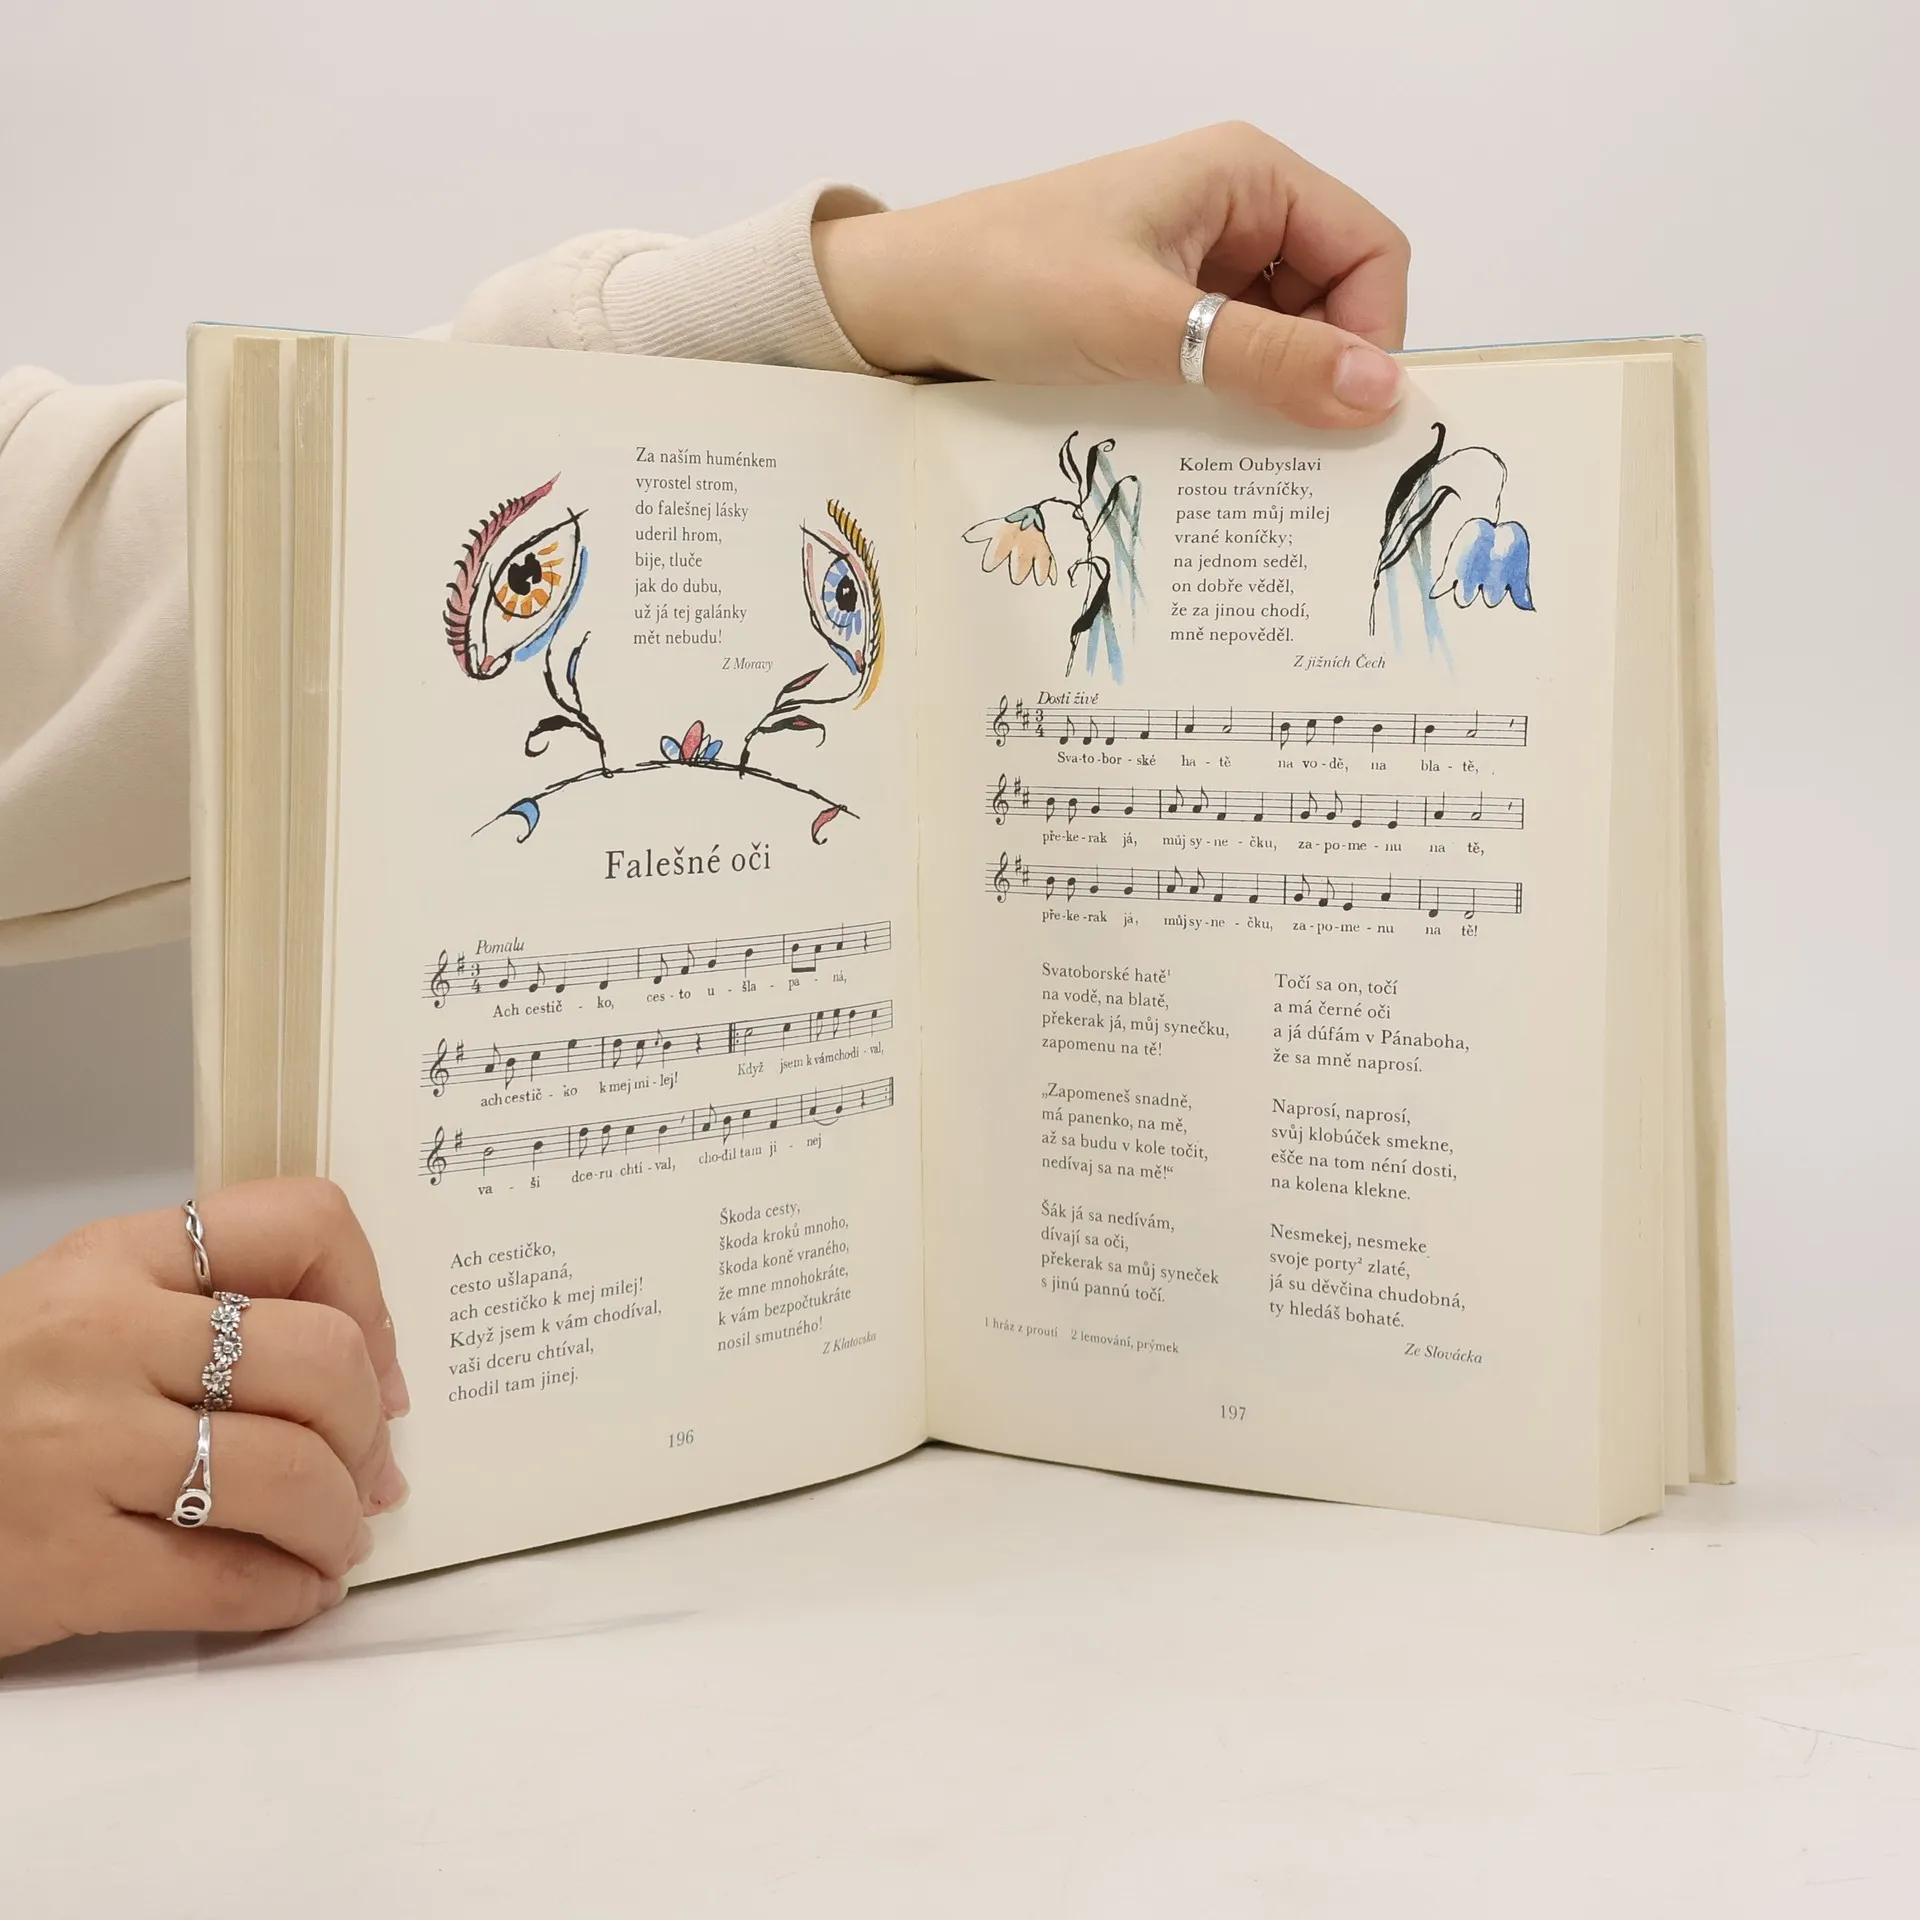 Za naším huménkem
vyrostel strom,
do falešnej lásky
uderil hrom,
bije, tluče
jak do dubu,
už já tej galánky
mět nebudu!
Z Moravy
Falešné oči
Pomalu
3
4
Ach cestič - ko, ces - to u - šla - pa - ná,
ach cestič - ko k mej mi - lej! Když jsem k vám chodí - val,
va - ši dce - ru chtí - val, cho-dil tam ji - nej
Ach cestičko,
cesto ušlapaná,
ach cestičko k mej milej!
Když jsem k vám chodíval,
vaši dceru chtíval,
chodil tam jinej.
Škoda cesty,
škoda kroků mnoho,
škoda koně vraného,
že mne mnohokráte,
k vám bezpočtukráte
nosil smutného!
Z Klatovska
196
Kolem Oubyslavi
rostou trávníčky,
pase tam můj milej
vrané koníčky;
na jednom seděl,
on dobře věděl,
že za jinou chodí,
mně nepověděl.
Z jižních Čech
Dosti živě
3
4
Sva-to-bor - ské ha - tě na vo - dě, na bla - tě,
pře-ke-rak já, můj sy - ne - čku, za - po - me - nu na tě,
pře-ke-rak já, můj sy - ne - čku, za - po - me - nu na tě!
Svatoborské hatě¹
na vodě, na blatě,
překerak já, můj synečku,
zapomenu na tě!
„Zapomeneš snadně,
má panenko, na mě,
až sa budu v kole točit,
nedívaj sa na mě!“
Šák já sa nedívám,
dívají sa oči,
překerak sa můj syneček
s jinú pannú točí.
Točí sa on, točí
a má černé oči
a já dúfám v Pánaboha,
že sa mně naprosí.
Naprosí, naprosí,
svůj klobúček smekne,
ešče na tom néní dosti,
na kolena klekne.
Nesmekej, nesmeke
svoje porty² zlaté,
já su děvčina chudobná,
ty hledáš bohaté.
Ze Slovácka
1 hráz z proutí 2 lemování, prýmek
197